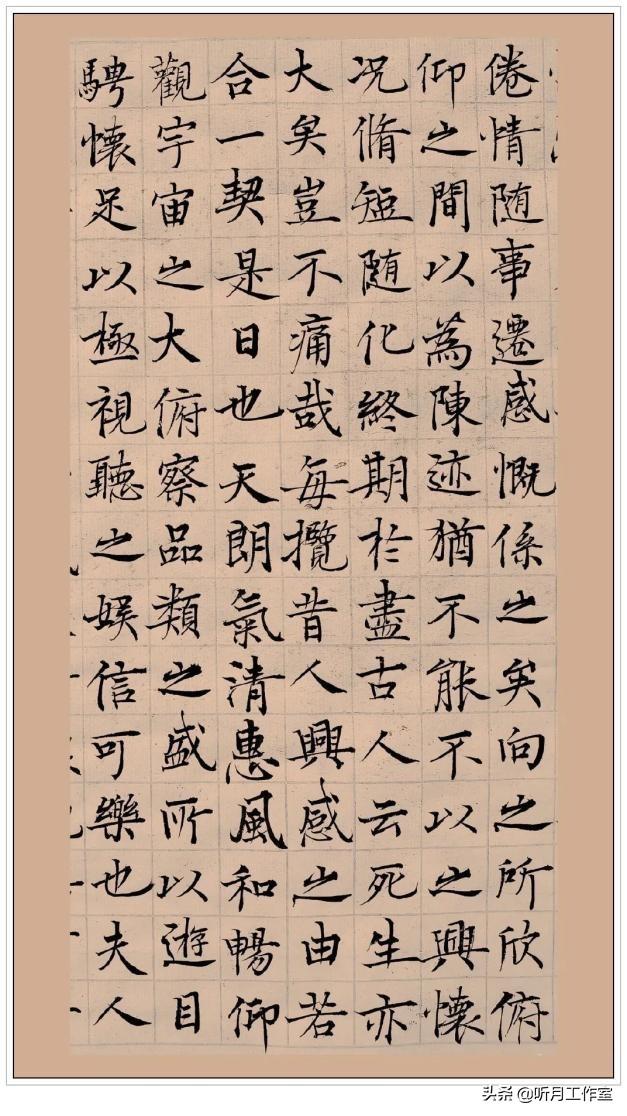 倦情随事遷感慨係之矣向之所欣俯
仰之間以為陳迹猶不能不以之興懷
况脩短随化終期於盡古人云死生亦
大矣豈不痛哉每攬昔人興感之由若
合一契是日也天朗氣清惠風和暢仰
觀宇宙之大俯察品類之盛所以遊目
騁懷足以極視聽之娱信可樂也夫人
头条 @听月工作室